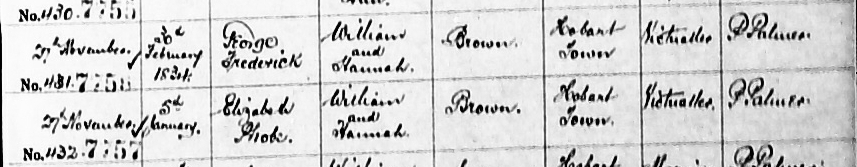 No. 430. 7755
27th November. 3d February 1834 George Frederick William and Hannah. Brown. Hobart Town Victualler P. Palmer.
No. 431. 7756
27th November. 5d January. Elizabeth Phobe. William and Hannah. Brown. Hobart Town. Victualler. P. Palmer.
No. 432. 7757
William Hobart P. Palmer